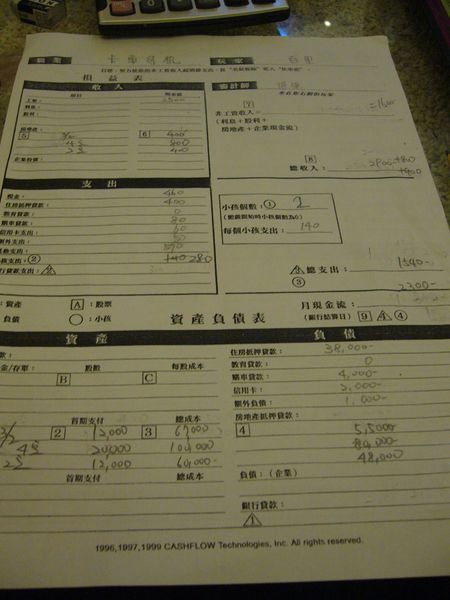 職業 卡車司機 玩家
損益表
收入 審計師
項目 現金流
坐在您右側的玩家
工資： 2500
利息：
股利：
7
非工資收入= =1600
(利息+股利+
房地產+企業現金流)
房地產：
5 3/2 6 400
4戶 800
2戶 400
企業投資：
8
總收入：
支出
稅金： 460
住房抵押貸款： 400
教育貸款： 0
購車貸款： 80
信用卡支出： 60
額外支出： 50
小孩支出： ② 140 280
銀行貸款支出：
小孩個數：① 2
(遊戲開始時小孩個數為0)
每個小孩支出： 140
總支出： 1540-
③
2300-
月現金流：
(銀行結算日) 9 ④
：資產 A ：股票
負債 ○：小孩
資產負債表
資產 負債
住房抵押貸款： 38,000-
教育貸款： 0
購車貸款： 4,000-
信用卡： 2,000-
額外負債： 1,000-
金/存單： 股數 每股成本
B C
房地產抵押貸款：
首期支付 總成本
3/2 2 12,000 3 67,000
4戶 20,000 100,000
2戶 12,000 60,000-
4 55,000
80,000-
48,000
首期支付 總成本
負債：(企業)
銀行貸款：
1
1996,1997,1999 CASHFLOW Technologies, Inc. All rights reserved.